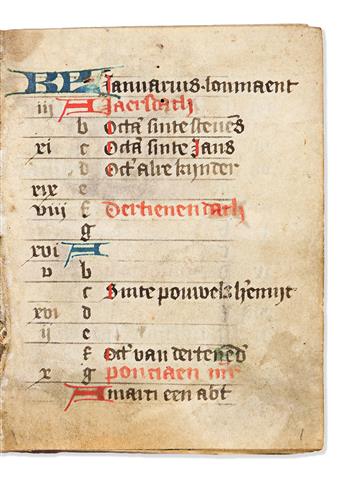 KL Januarius. lonmaent
iii A Jaersdach
b Octa' sinte steue͞s
xi c Octa' sinte Jans
d Oct' alre kijnder
xix e
viii f Dertienendach
g
xvi A
v b
c Sinte pouwels h'emijt
xiii d
ii e
f Oct' van dertene͞d
x g ponciaen m'r
A marti een abt